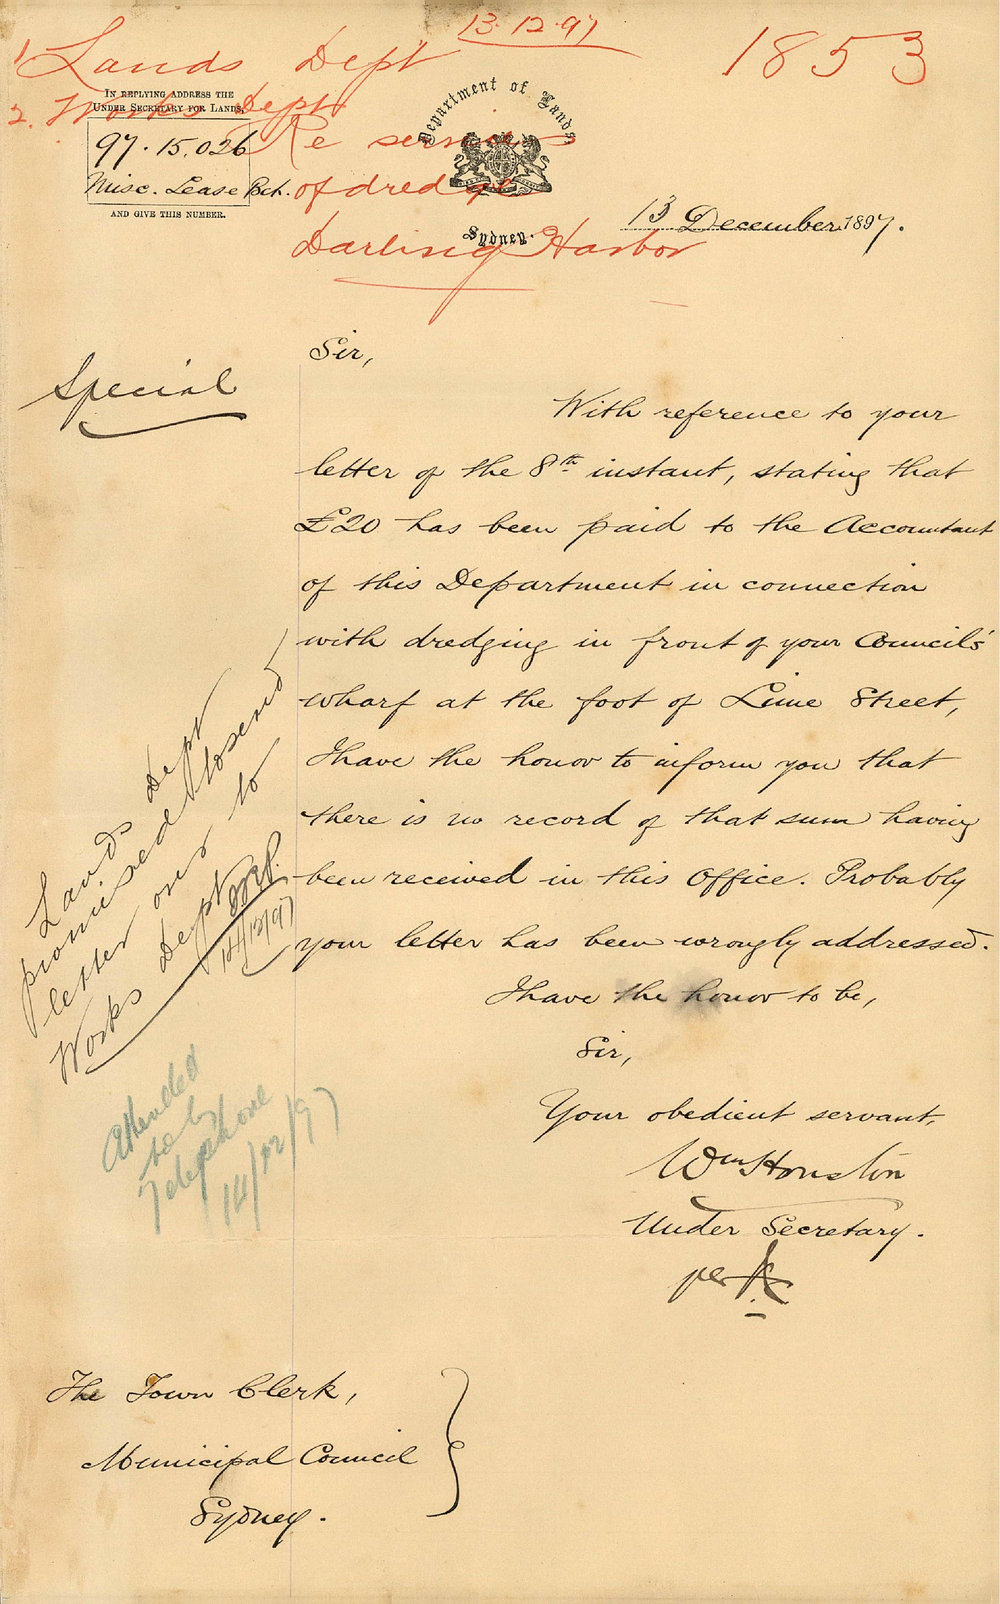 13.12.97
1 Lands Dept
1853
2. Works Dept
IN REPLYING ADDRESS THE
UNDER SECRETARY FOR LANDS,
97.15.026
Misc. Lease Bch.
AND GIVE THIS NUMBER.
Department of Lands
Sydney.
Re service
of dredge
Darling Harbor
13 December 1897.
Special
Sir,
With reference to your
letter of the 8th instant, stating that
£20 has been paid to the Accountant
of this Department in connection
with dredging in front of your Council's
wharf at the foot of Lime Street,
I have the honor to inform you that
there is no record of that sum having
been received in this Office. Probably
your letter has been wrongly addressed.
I have the honor to be,
Sir,
Your obedient servant,
Wm Houston
Under Secretary.
per
Lands Dept
promised to send
letter on to
Works Dept
14/12/97
Attended
to by
Telephone
14/12/97
The Town Clerk,
Municipal Council
Sydney.